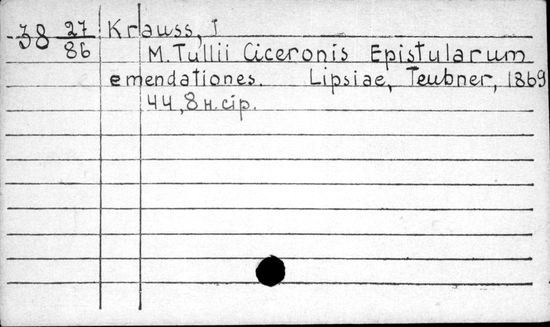 38 27/86 Krauss, J
M. Tullii Ciceronis Epistularum
emendationes. Lipsiae, Teubner, 1869
44, 8 н. cip.